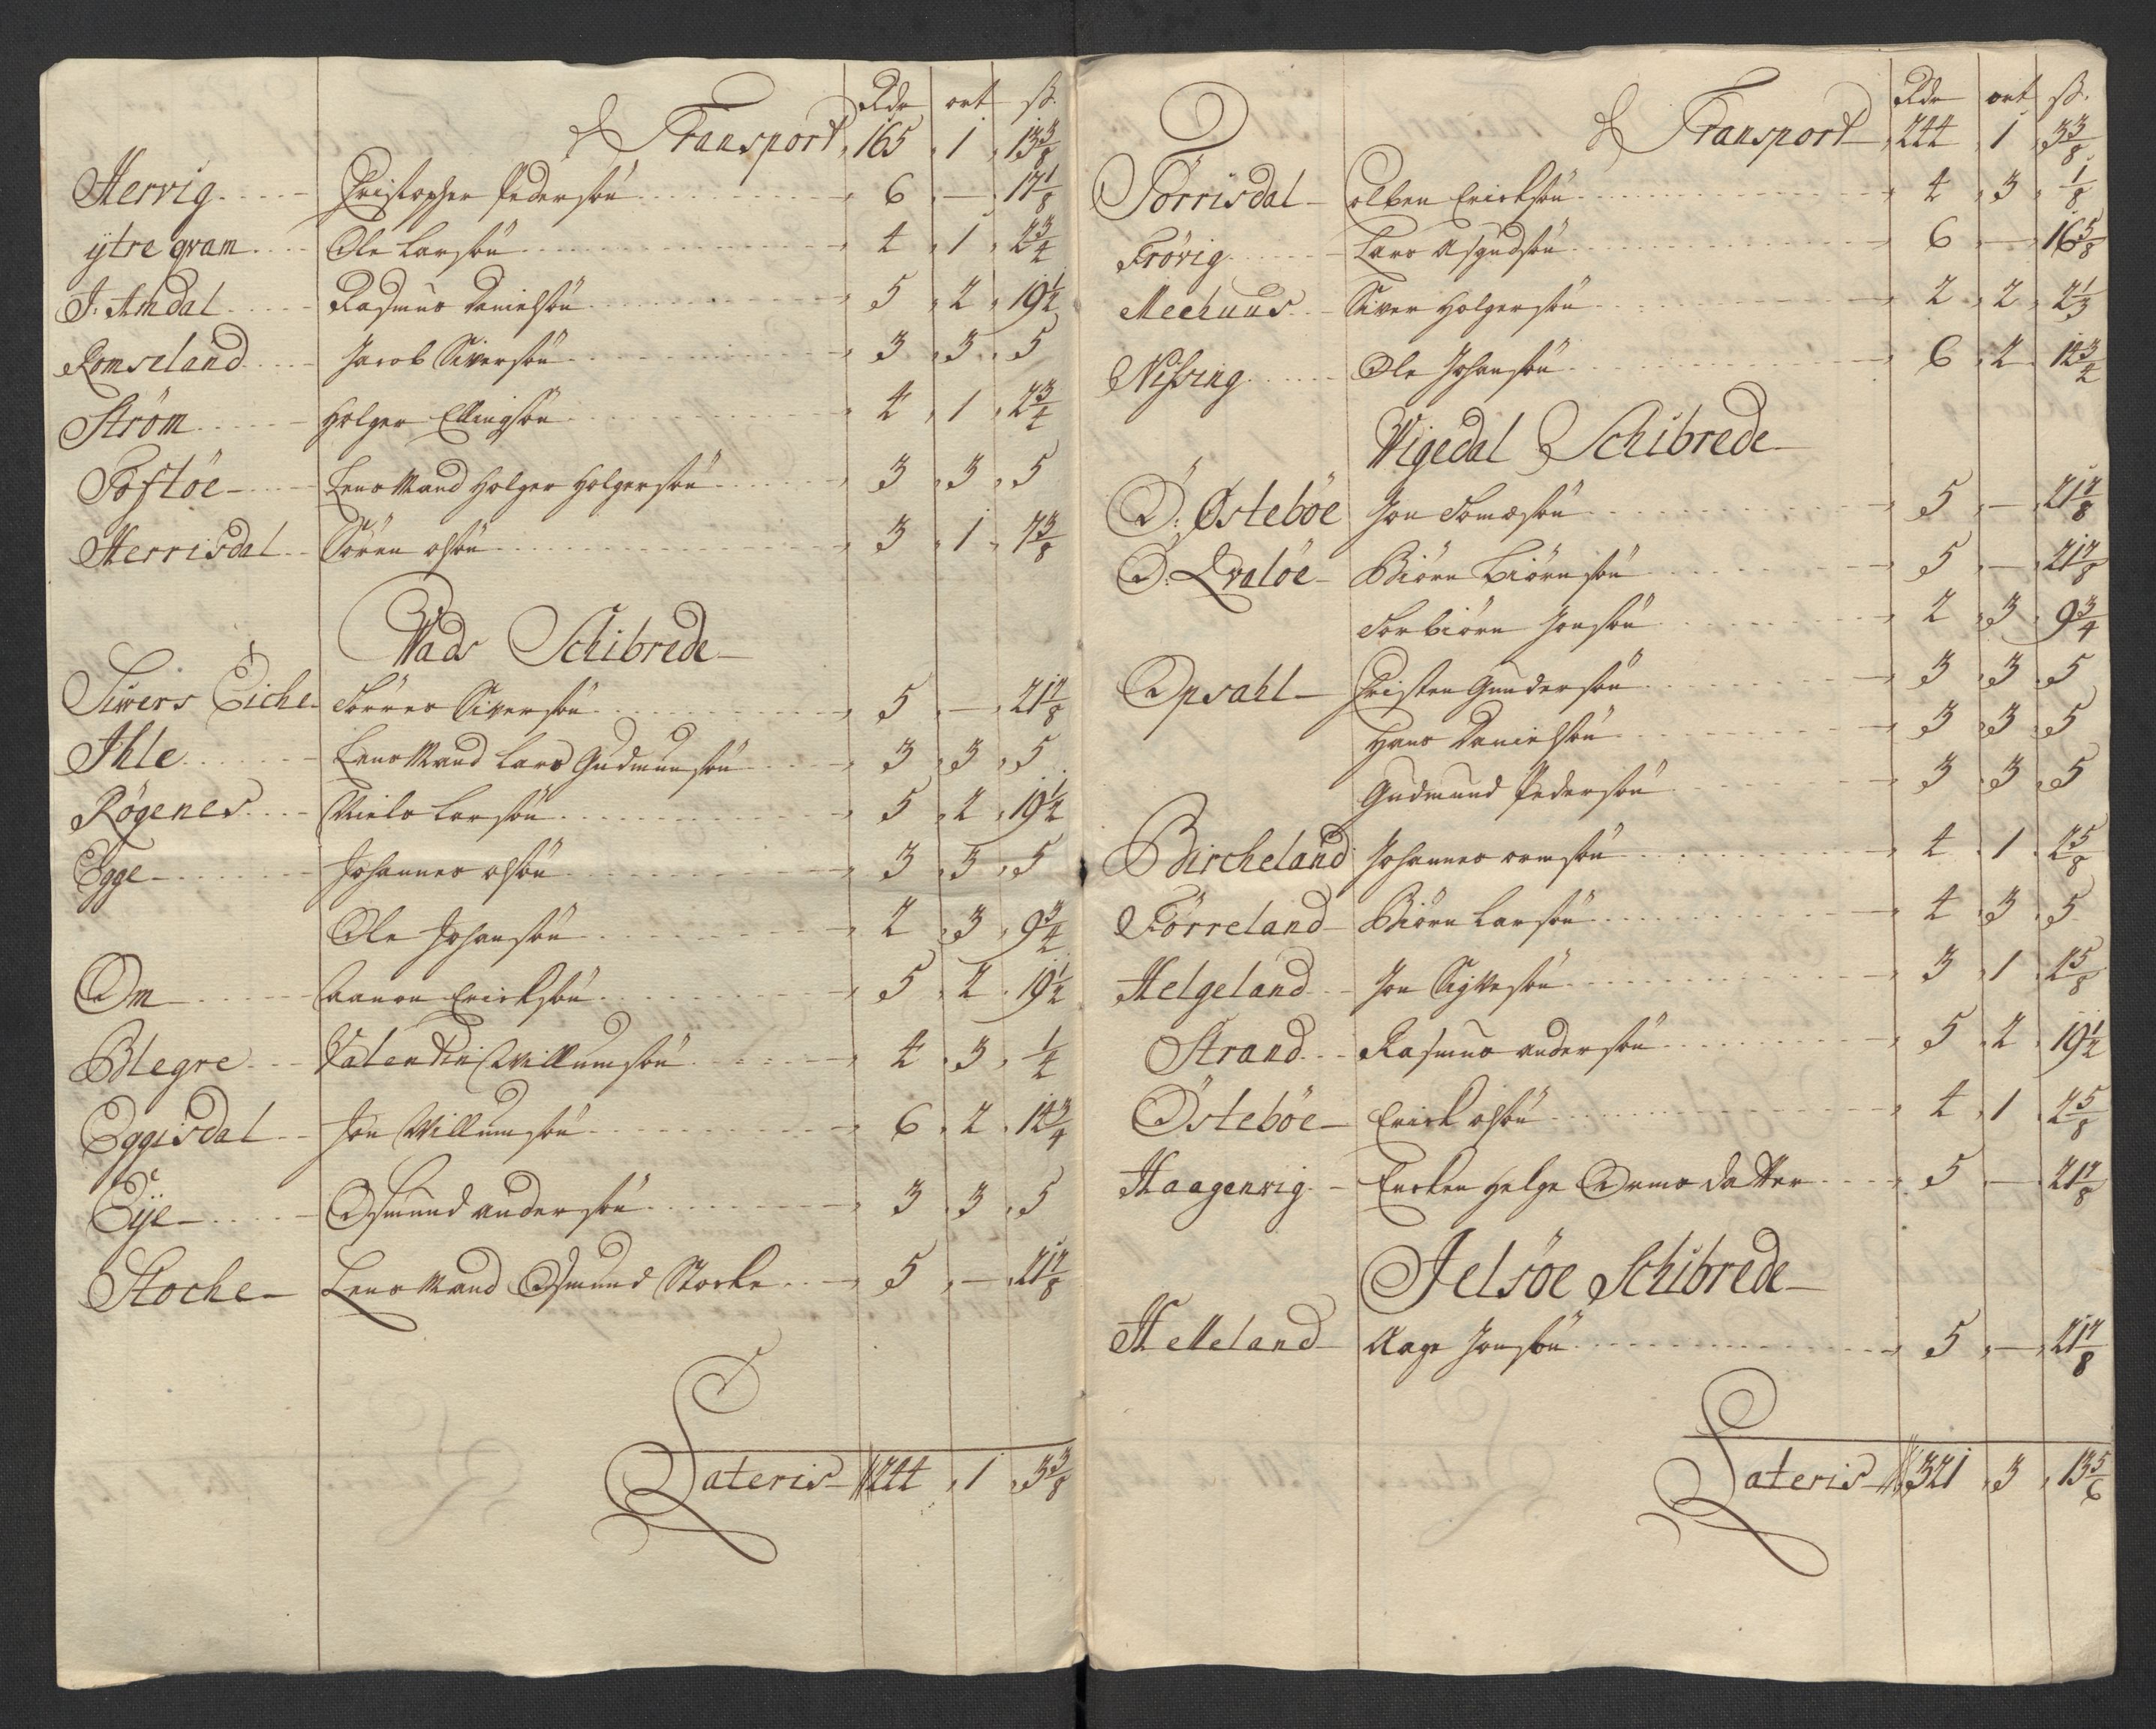 Rdr ort ß.
Transport 165 1 13 3/8
Hervig Christopher Pedersön 6 — 17 1/8
ÿtre qvam Ole Larsön 4 1 2 3/4
J: Amdal Rasmus Danielsön 5 2 19 1/2
Romseland Jacob Siversön 3 3 5
Ström Holger Ellingsön 4 1 2 3/4
Toftöe Lensmand Holger Holgersön 3 3 5
Herrisdal Sören olsön 3 1 7 3/8
Vads Schibrede
Siwers Eiche Törres Siversön 5 — 21 7/8
Ihle Lensmand Lars Gudmunsön 3 3 5
Røgenes Niels Larsön 5 2 19 1/2
Egge Johannes olsön 3 3 5
Ole Johansön 2 3 9 3/4
Om Aanon Ericksön 5 2 19 1/2
Blegre Valentin Willumsön 4 3 1/4
Eggisdal Jon Willumsön 6 2 14 3/4
Eÿe Osmund andersön 3 3 5
Stoche Lensmand Osmund Stocke 5 — 21 7/8
Lateris 244 1 3 3/8
Rdr ort ß.
Transport 244 1 3 3/8
Törrisdal Colben Ericksön 4 3 1/8
Frövig Lars Asgudsön 6 — 16 5/8
Meehuus Siver Holgersön 2 2 2 1/3
Nissing Ole Johansön 6 2 14 3/4
Wigedal Schibrede
D: Østeböe Jon Tomæsön 5 — 21 7/8
D: Qvalöe Biörn Biörnsön 5 — 21 7/8
Torbiörn Jonsön 2 3 9 3/4
Opsahl Christen Gundersön 3 3 5
Hans Danielsön 3 3 5
Gudmund Pedersön 3 3 5
Bircheland Johannes ormsön 4 1 2 5/8
Förreland Biörn Larsön 4 3 5
Helgeland Jon Sigvesön 3 1 2 5/8
Strand Rasmus andersön 5 2 19 1/2
Östeböe Erick olsön 4 1 2 5/8
Haagenvig Encken Helge Ormsdatter 5 — 21 7/8
Jelsöe Schibrede
Helleland Aage Jonsön 5 — 21 7/8
Lateris 321 3 13 5/6